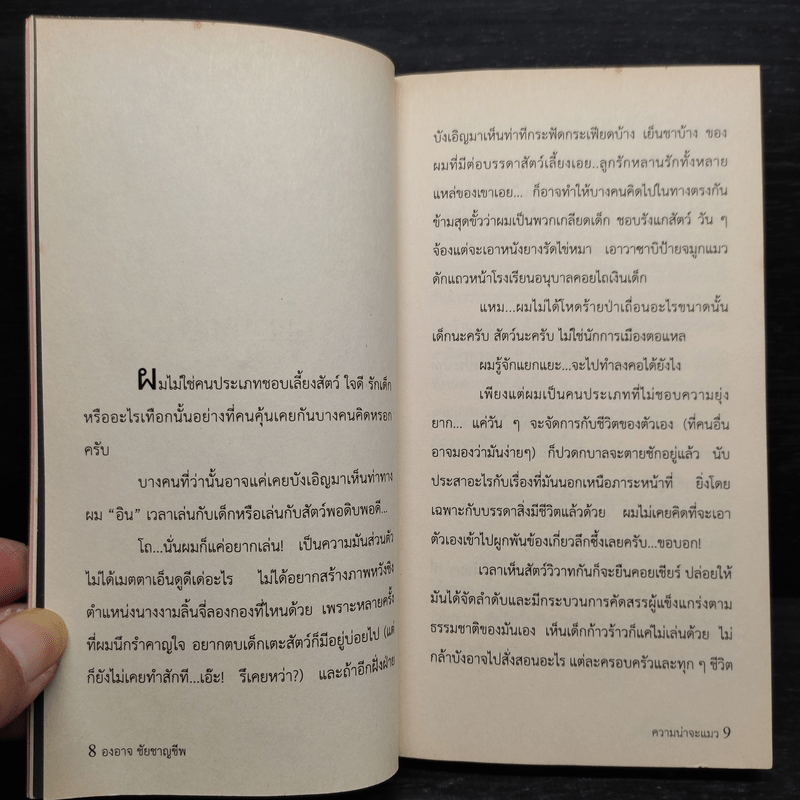 ผมไม่ใช่คนประเภทชอบเลี้ยงสัตว์ ใจดี รักเด็ก
หรืออะไรเทือกนั้นอย่างที่คนคุ้นเคยกันบางคนคิดหรอก
ครับ
บางคนที่ว่านั้นอาจแค่เคยบังเอิญมาเห็นท่าทาง
ผม “อิน” เวลาเล่นกับเด็กหรือเล่นกับสัตว์พอดิบพอดี...
โถ...นั่นผมก็แค่อยากเล่น! เป็นความมันส่วนตัว
ไม่ได้เมตตาเอ็นดูดีเด่อะไร ไม่ได้อยากสร้างภาพหวังชิง
ตำแหน่งนางงามลิ้นจี่ลองกองที่ไหนด้วย เพราะหลายครั้ง
ที่ผมนึกรำคาญใจ อยากตบเด็กเตะสัตว์ก็มีอยู่บ่อยไป (แต่
ก็ยังไม่เคยทำสักที...เอ๊ะ! รึเคยหว่า?) และถ้าอีกฝั่งฝ่าย
8 องอาจ ชัยชาญชีพ
บังเอิญมาเห็นท่าทีกระฟัดกระเฟียดบ้าง เย็นชาบ้าง ของ
ผมที่มีต่อบรรดาสัตว์เลี้ยงเอย..ลูกรักหลานรักทั้งหลาย
แหล่ของเขาเอย... ก็อาจทำให้บางคนคิดไปในทางตรงกัน
ข้ามสุดขั้วว่าผมเป็นพวกเกลียดเด็ก ชอบรังแกสัตว์ วัน ๆ
จ้องแต่จะเอาหนังยางรัดไข่หมา เอาวาซาบิป้ายจมูกแมว
ดักแถวหน้าโรงเรียนอนุบาลคอยไถเงินเด็ก
แหม...ผมไม่ได้โหดร้ายป่าเถื่อนอะไรขนาดนั้น
เด็กนะครับ สัตว์นะครับ ไม่ใช่นักการเมืองตอแหล
ผมรู้จักแยกแยะ...จะไปทำลงคอได้ยังไง
เพียงแต่ผมเป็นคนประเภทที่ไม่ชอบความยุ่ง
ยาก... แค่วัน ๆ จะจัดการกับชีวิตของตัวเอง (ที่คนอื่น
อาจมองว่ามันง่ายๆ) ก็ปวดกบาลจะตายชักอยู่แล้ว นับ
ประสาอะไรกับเรื่องที่มันนอกเหนือภาระหน้าที่ ยิ่งโดย
เฉพาะกับบรรดาสิ่งมีชีวิตแล้วด้วย ผมไม่เคยคิดที่จะเอา
ตัวเองเข้าไปผูกพันข้องเกี่ยวลึกซึ้งเลยครับ...ขอบอก!
เวลาเห็นสัตว์วิวาทกันก็จะยืนคอยเชียร์ ปล่อยให้
มันได้จัดลำดับและมีกระบวนการคัดสรรผู้แข็งแกร่งตาม
ธรรมชาติของมันเอง เห็นเด็กก้าวร้าวก็แค่ไม่เล่นด้วย ไม่
กล้าบังอาจไปสั่งสอนอะไร แต่ละครอบครัวและทุก ๆ ชีวิต
ความน่าจะแมว 9